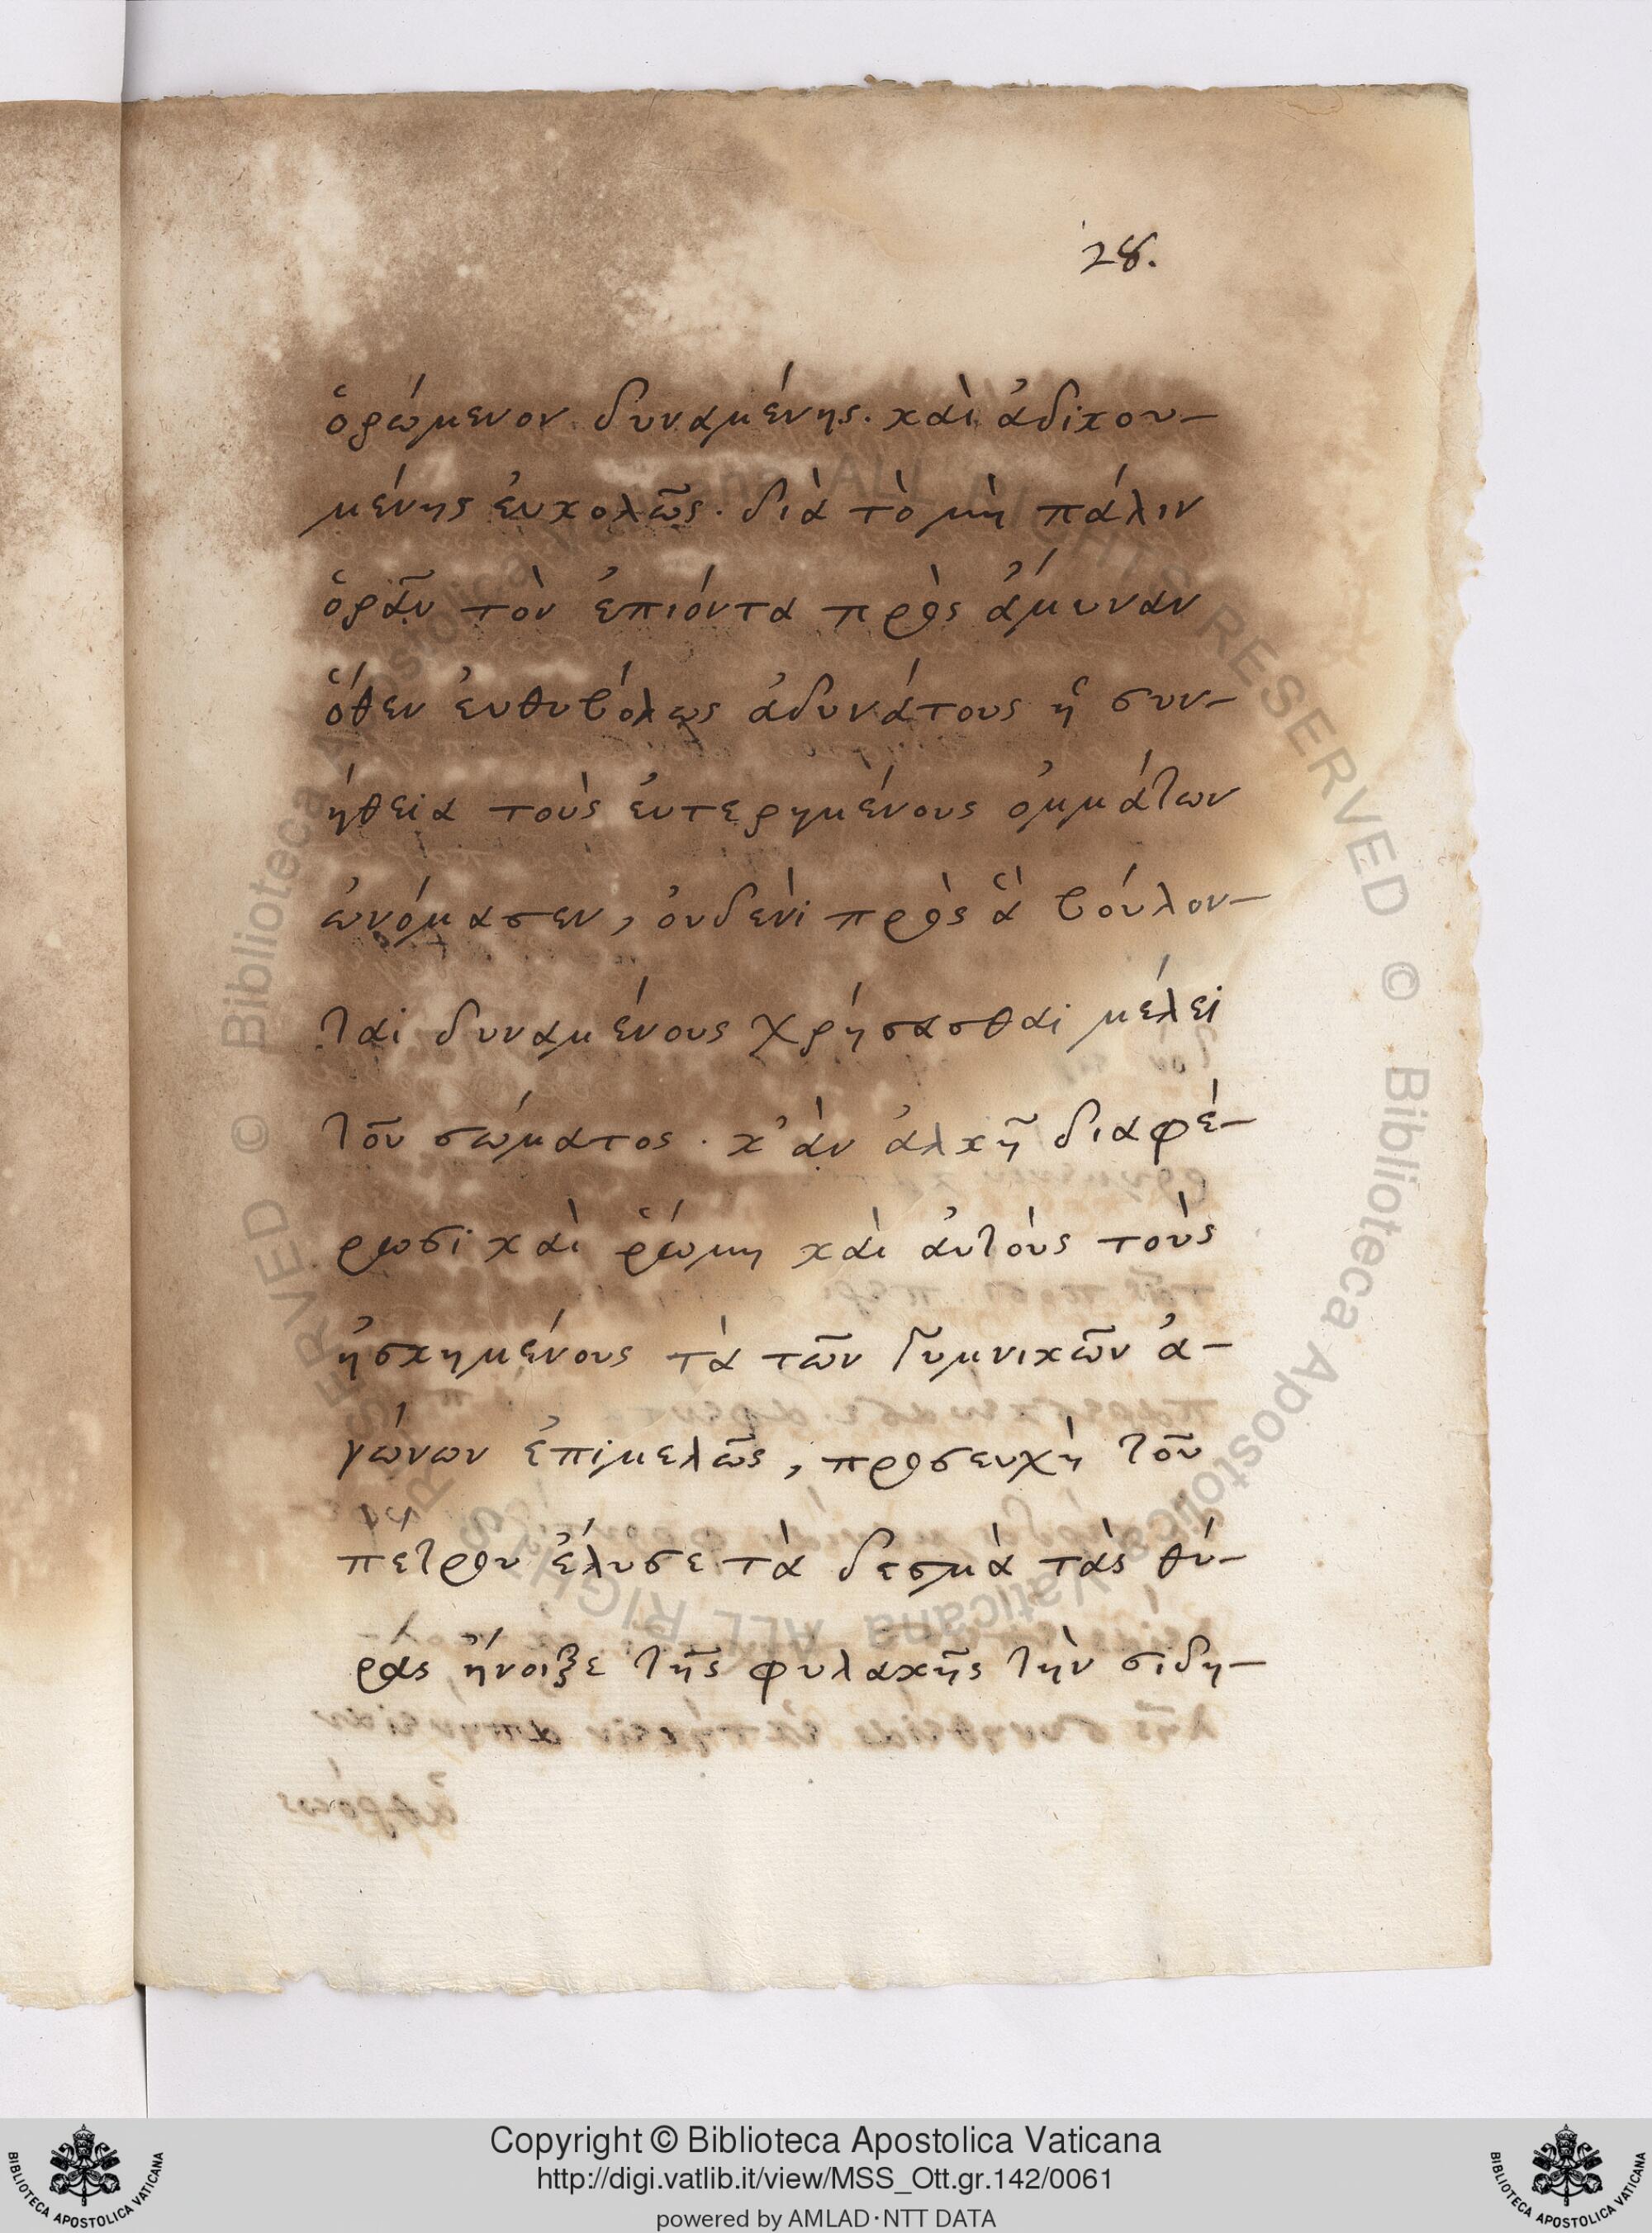 28.
ὁρώμενον δυναμένης. καὶ ἀδικου-
μένης ἐυκολῶς. διὰ τὸ μὴ πάλιν
ὁρᾶν τὸν ἐπιόντα πρὸς ἄμυναν
ὅθεν ἐυθυβόλως ἀδυνάτους ἡ συν-
ήθεια τοὺς ἐυτερημένους ὀμμάτων
ὠνόμασεν, ὀυδενὶ πρὸς ἃ βούλον-
ται δυναμένους χρήσασθαι μέλει
τοῦ σώματος. κ'ἂν ἀλκῆ διαφέ-
ρωσι καὶ ῥώμη καὶ ἀυτὸυς τοὺς
ἠσκημένους τὰ τῶν γυμνικῶν ἀ-
γώνων ἐπιμελῶς, προσευχὴ τοῦ
πέτρου ἔλυσε τὰ δεσμὰ τὰς θύ-
ρας ἤνοιξε τῆς φυλακῆς τὴν σιδη-
Copyright © Biblioteca Apostolica Vaticana
http://digi.vatlib.it/view/MSS_Ott.gr.142/0061
powered by AMLAD·NTT DATA
BIBLIOTECA APOSTOLICA VATICANA
BIBLIOTECA APOSTOLICA VATICANA
© Biblioteca Apostolica Vaticana ALL RIGHTS RESERVED © Biblioteca Apostolica Vaticana ALL RIGHTS RESERVED